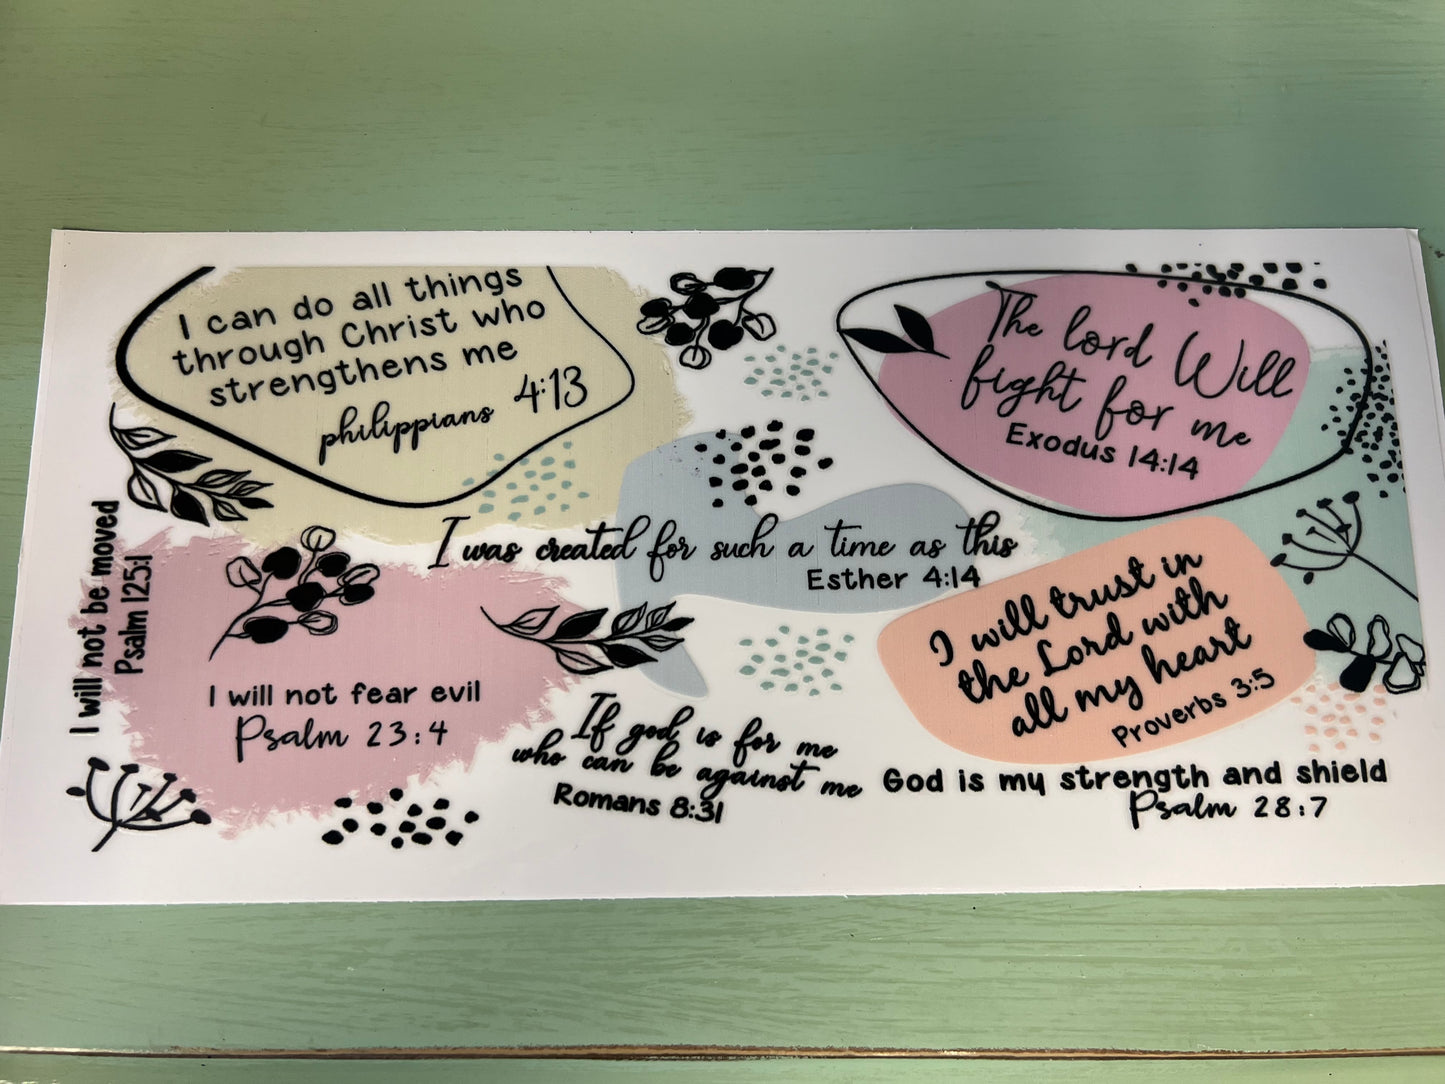 I can do all things
through Christ who
strengthens me
philippians 4:13
The lord Will
fight for me
Exodus 14:14
I was created for such a time as this
Esther 4:14
I will not be moved
Psalm 125:1
I will not fear evil
Psalm 23:4
I will trust in
the Lord with
all my heart
Proverbs 3:5
If god is for me
who can be against me
Romans 8:31
God is my strength and shield
Psalm 28:7